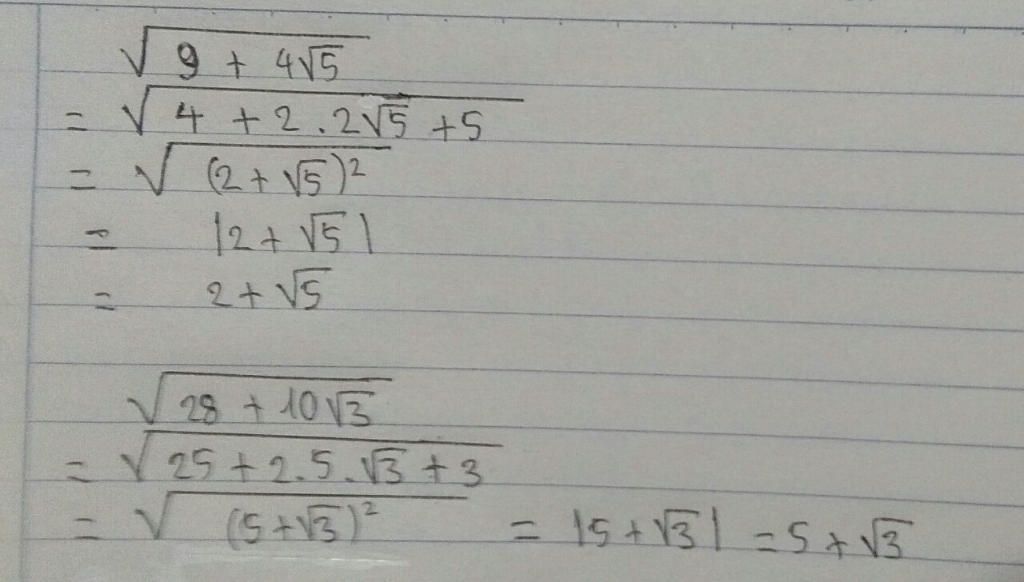 √(9 + 4√5)
= √(4 + 2 . 2√5 + 5)
= √((2 + √5)²)
= |2 + √5|
= 2 + √5
√(28 + 10√3)
= √(25 + 2.5.√3 + 3)
= √((5 + √3)²) = |5 + √3| = 5 + √3